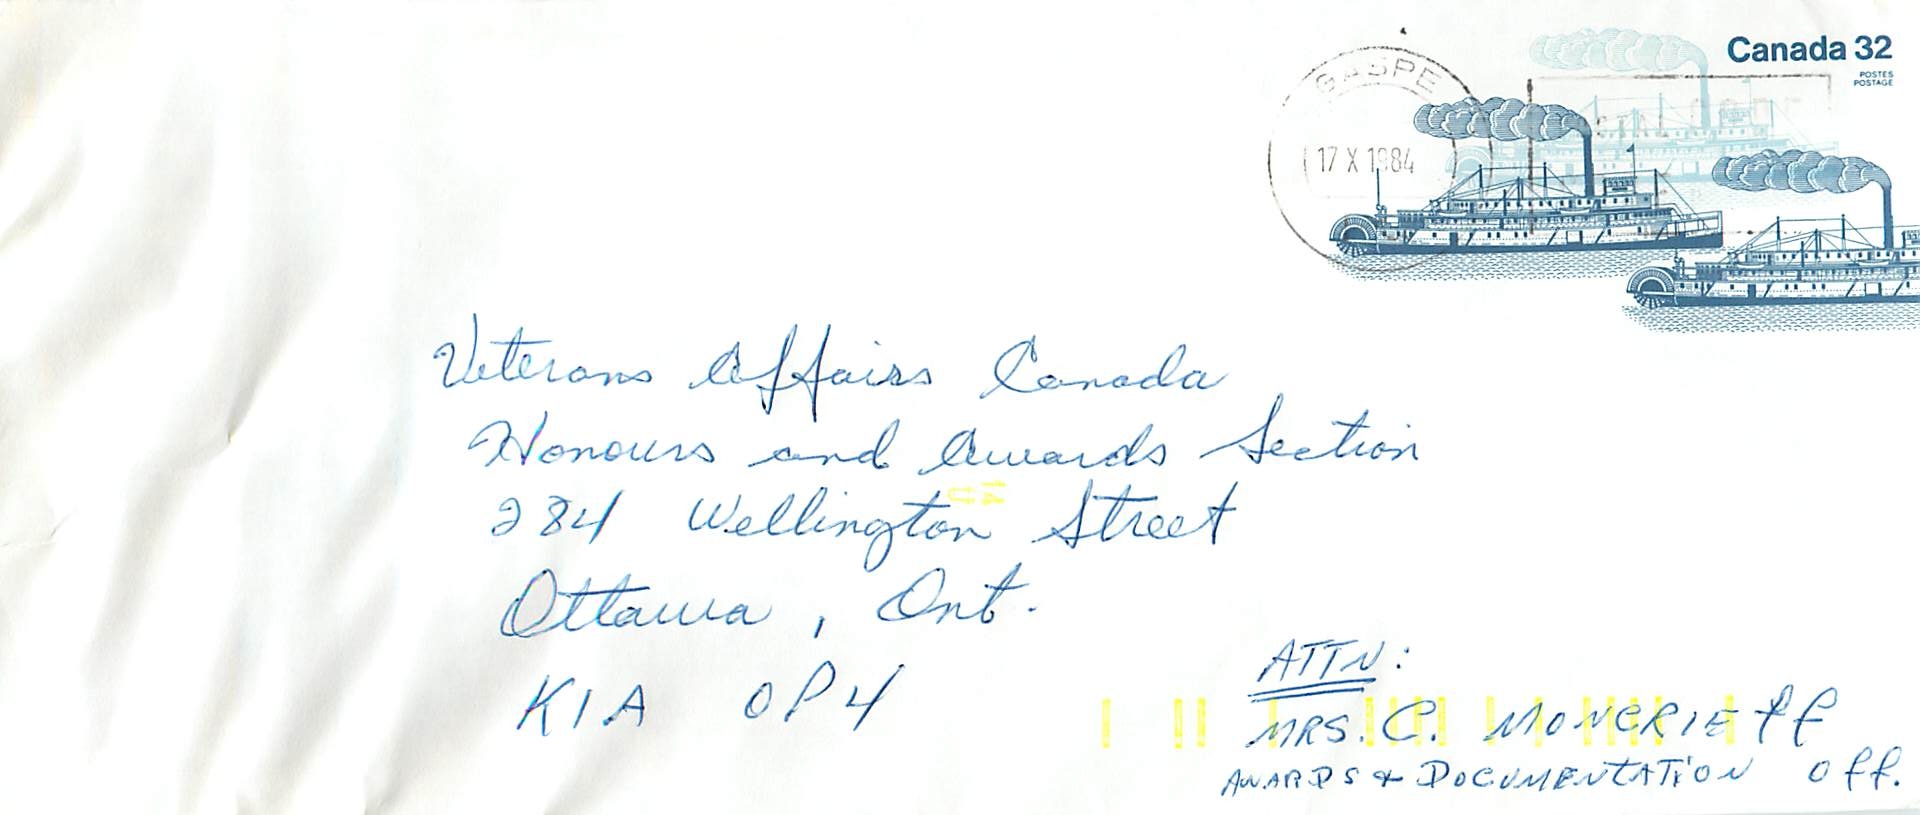 Canada 32
POSTES
POSTAGE
GASPE
17 X 1984
Veterans Affairs Canada
Honours and Awards Section
284 Wellington Street
Ottawa, Ont.
K1A 0P4
ATTN:
MRS. C. MONCRIEff
AWARDS & DOCUMENTATION Off.